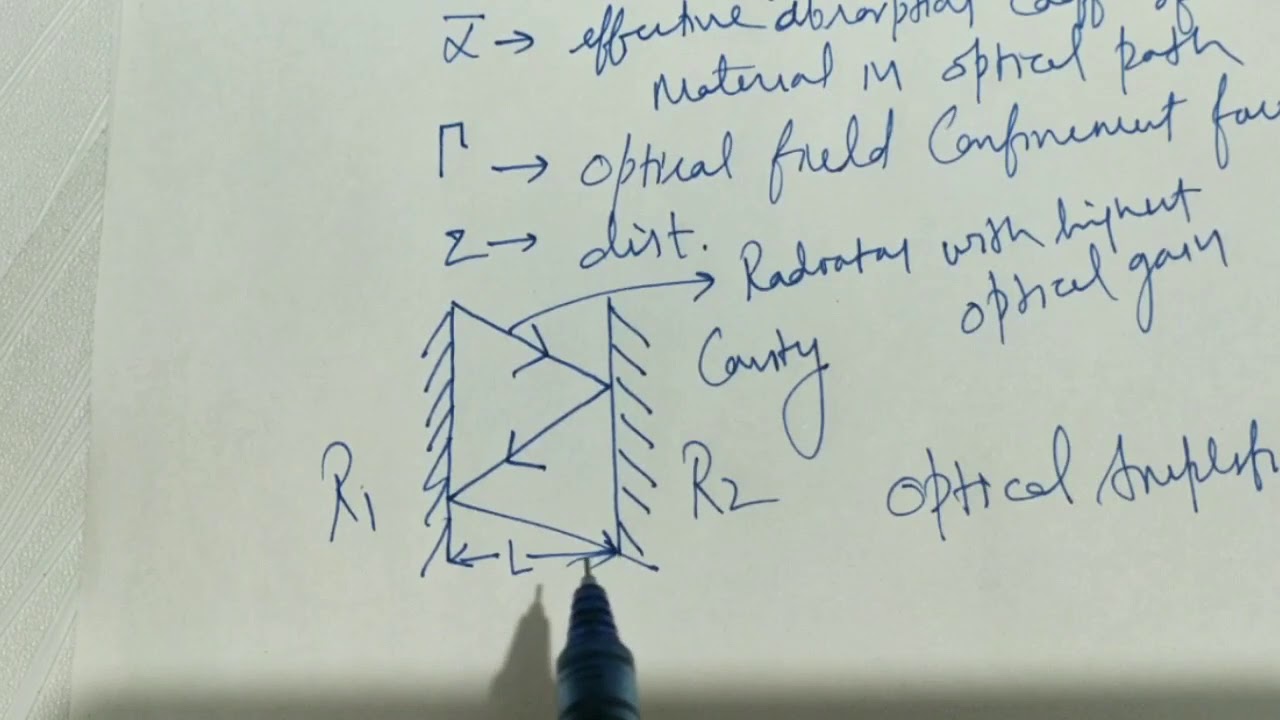 ᾱ → effective absorption Coeff of
Material in optical path
Γ → optical field Confinement
Z → dist.
Radiation with highest
optical gain
Cavity
R1
R2
optical
L